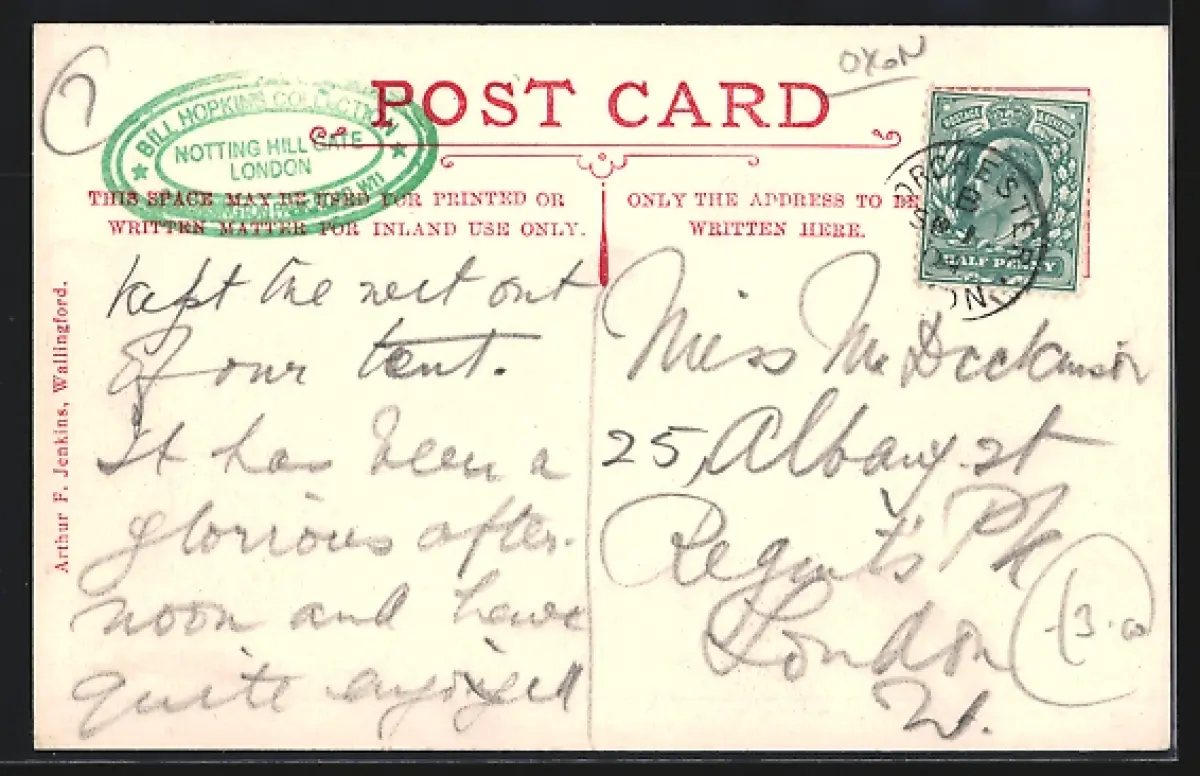 OXON
7
POST CARD
BILL HOPKINS COLLECTION
NOTTING HILL GATE
LONDON
W11
THIS SPACE MAY BE USED FOR PRINTED OR
WRITTEN MATTER FOR INLAND USE ONLY.
ONLY THE ADDRESS TO BE
WRITTEN HERE.
HALF PENNY
Arthur F. Jenkins, Wallingford.
kept the wet out
of our tent.
It has been a
glorious after-
noon and have
quite enjoyed
Miss Mc Dickinson
25, Albany st
Regent's Pk
London
W.